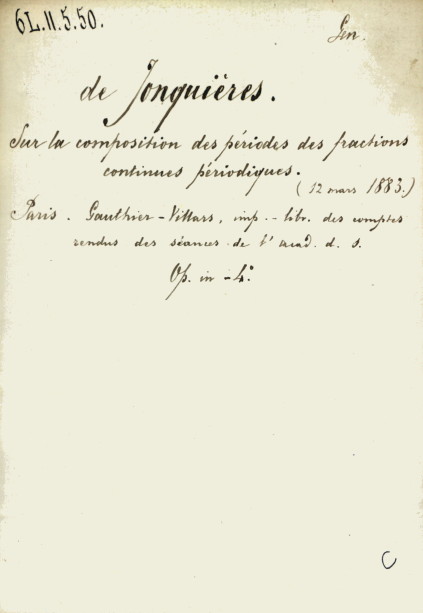 6L.11.5.50.
Gen.
de Jonquières.
Sur la composition des périodes des fractions
continues périodiques.
(12 mars 1883.)
Paris. Gauthier-Villars, imp.-libr. des comptes
rendus des séances de l'acad. d. s.
Op. in-4°.
C